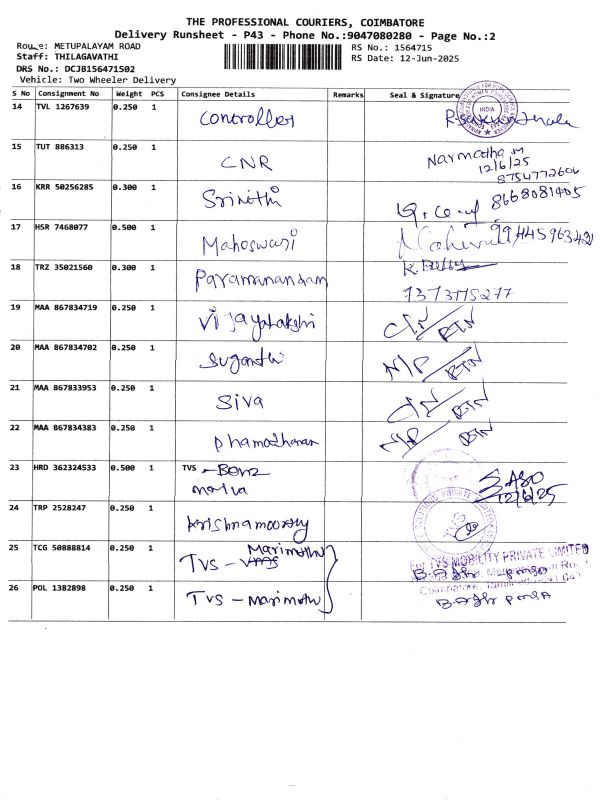 THE PROFESSIONAL COURIERS, COIMBATORE
Delivery Runsheet - P43 - Phone No.:9047080280 - Page No.:2
Route: METUPALAYAM ROAD
RS No.: 1564715
Staff: THILAGAVATHI
RS Date: 12-Jun-2025
DRS No.: DCJB156471502
Vehicle: Two Wheeler Delivery
S No Consignment No Weight PCS Consignee Details Remarks Seal & Signature
14 TVL 1267639 0.250 1 Controller
INDIA
15 TUT 886313 0.250 1 CNR Narmatha.M
12/6/25
8754772606
16 KRR 50256285 0.300 1 Srinithi 8668081405
17 HSR 7468077 0.500 1 Maheswari 9944596342
18 TRZ 35021560 0.300 1 Paramanandam
7373175277
19 MAA 867834719 0.250 1 Vijayalakshi
20 MAA 867834702 0.250 1 Suganthi N/P
21 MAA 867833953 0.250 1 Siva
22 MAA 867834383 0.250 1 Dhamotharan N/P
23 HRD 362324533 0.500 1 TVS - Benz
12/6/25
24 TRP 2528247 0.250 1 Krishnamoorthy
TVS
25 TCG 50888814 0.250 1 TVS - Marimothu
For TVS MOBILITY PRIVATE LIMITED
26 POL 1382898 0.250 1 TVS - Marimothu